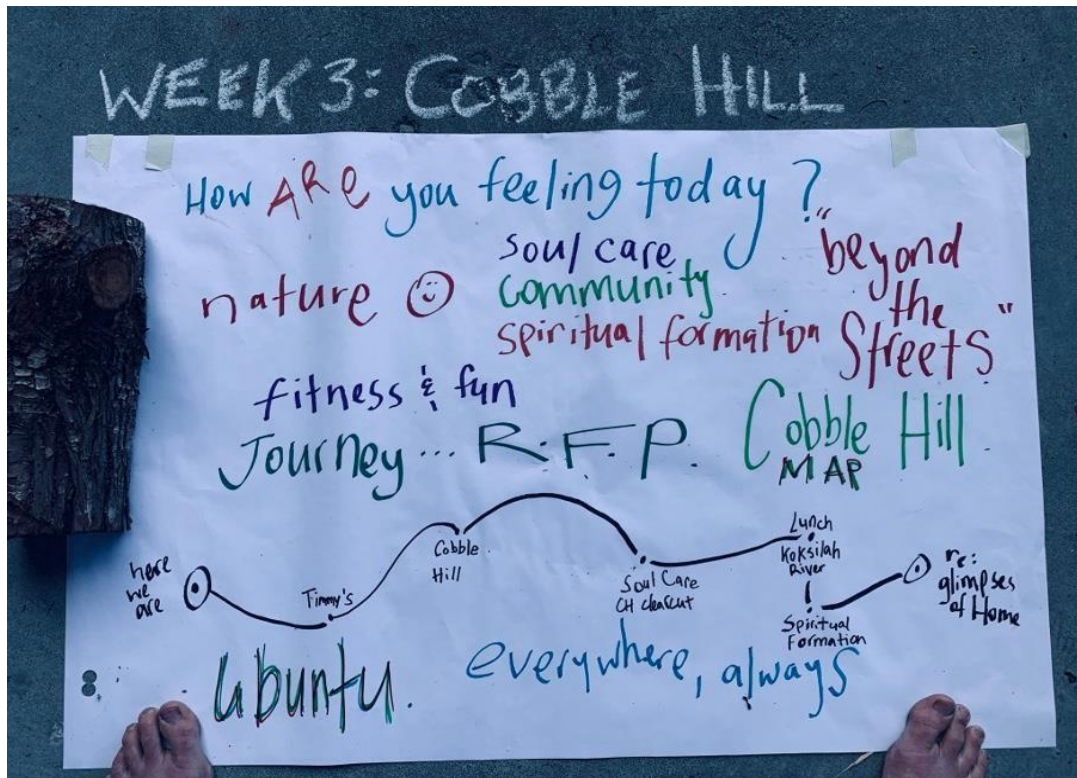 WEEK 3: COBBLE HILL
How ARe you feeling today?
nature
soul care
community
spiritual formation
"beyond
the
Streets"
fitness & fun
Journey... R.F.P.
Cobble Hill
MAP
here
we
are
Timmy's
Cobble
Hill
Soul Care
CH clearcut
Lunch
Koksilah
River
Spiritual
Formation
re:
glimpses
of Home
Ubuntu.
everywhere, always